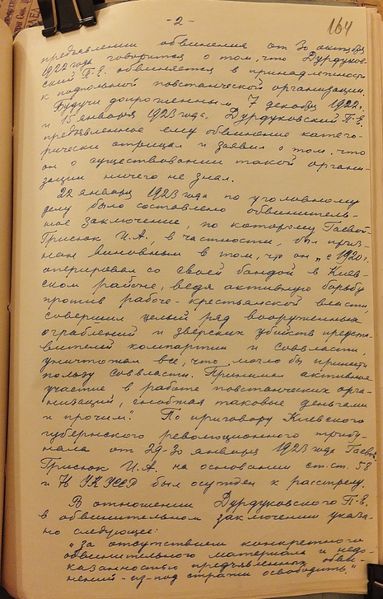 - 2 -
164
предъявлении обвинения от 30 октября
1922 года говорится о том, что Дурдуков-
ский П.Е. обвиняется в принадлежности
к подпольной повстанческой организации.
Будучи допрошенным 7 декабря 1922 г.
и 15 января 1923 года, Дурдуковский П.Е.
предъявленное ему обвинение катего-
рически отрицал и заявил о том, что
он о существовании такой органи-
зации ничего не знал.
22 января 1923 года по уголовному
делу было составлено обвинитель-
ное заключение, по которому Гаевой-
Грисюк И.А., в частности, был приз-
нан виновным в том, что он „с 1920 г.
оперировал со своей бандой в Киев-
ском районе, ведя активную борьбу
против рабоче-крестьянской власти,
совершил целый ряд вооруженных
ограблений и зверских убийств предста-
вителей компартии и соввласти
уничтожал все, что могло бы принести
пользу соввласти. Принимал активное
участие в работе повстанческих орга-
низаций, снабжая таковые деньгами
и прочим". По приговору Киевского
губернского революционного трибу-
нала от 29-30 января 1923 года Гаевой
Грисюк И.А. на основании ст.ст. 58
и УК УССР был осужден к расстрелу.
В отношении Дурдуковского П.Е.
в обвинительном заключении указа-
но следующее:
„За отсутствием конкретного
обвинительного материала и недо-
казанностью предъявленных обви-
нений - из-под стражи освободить."